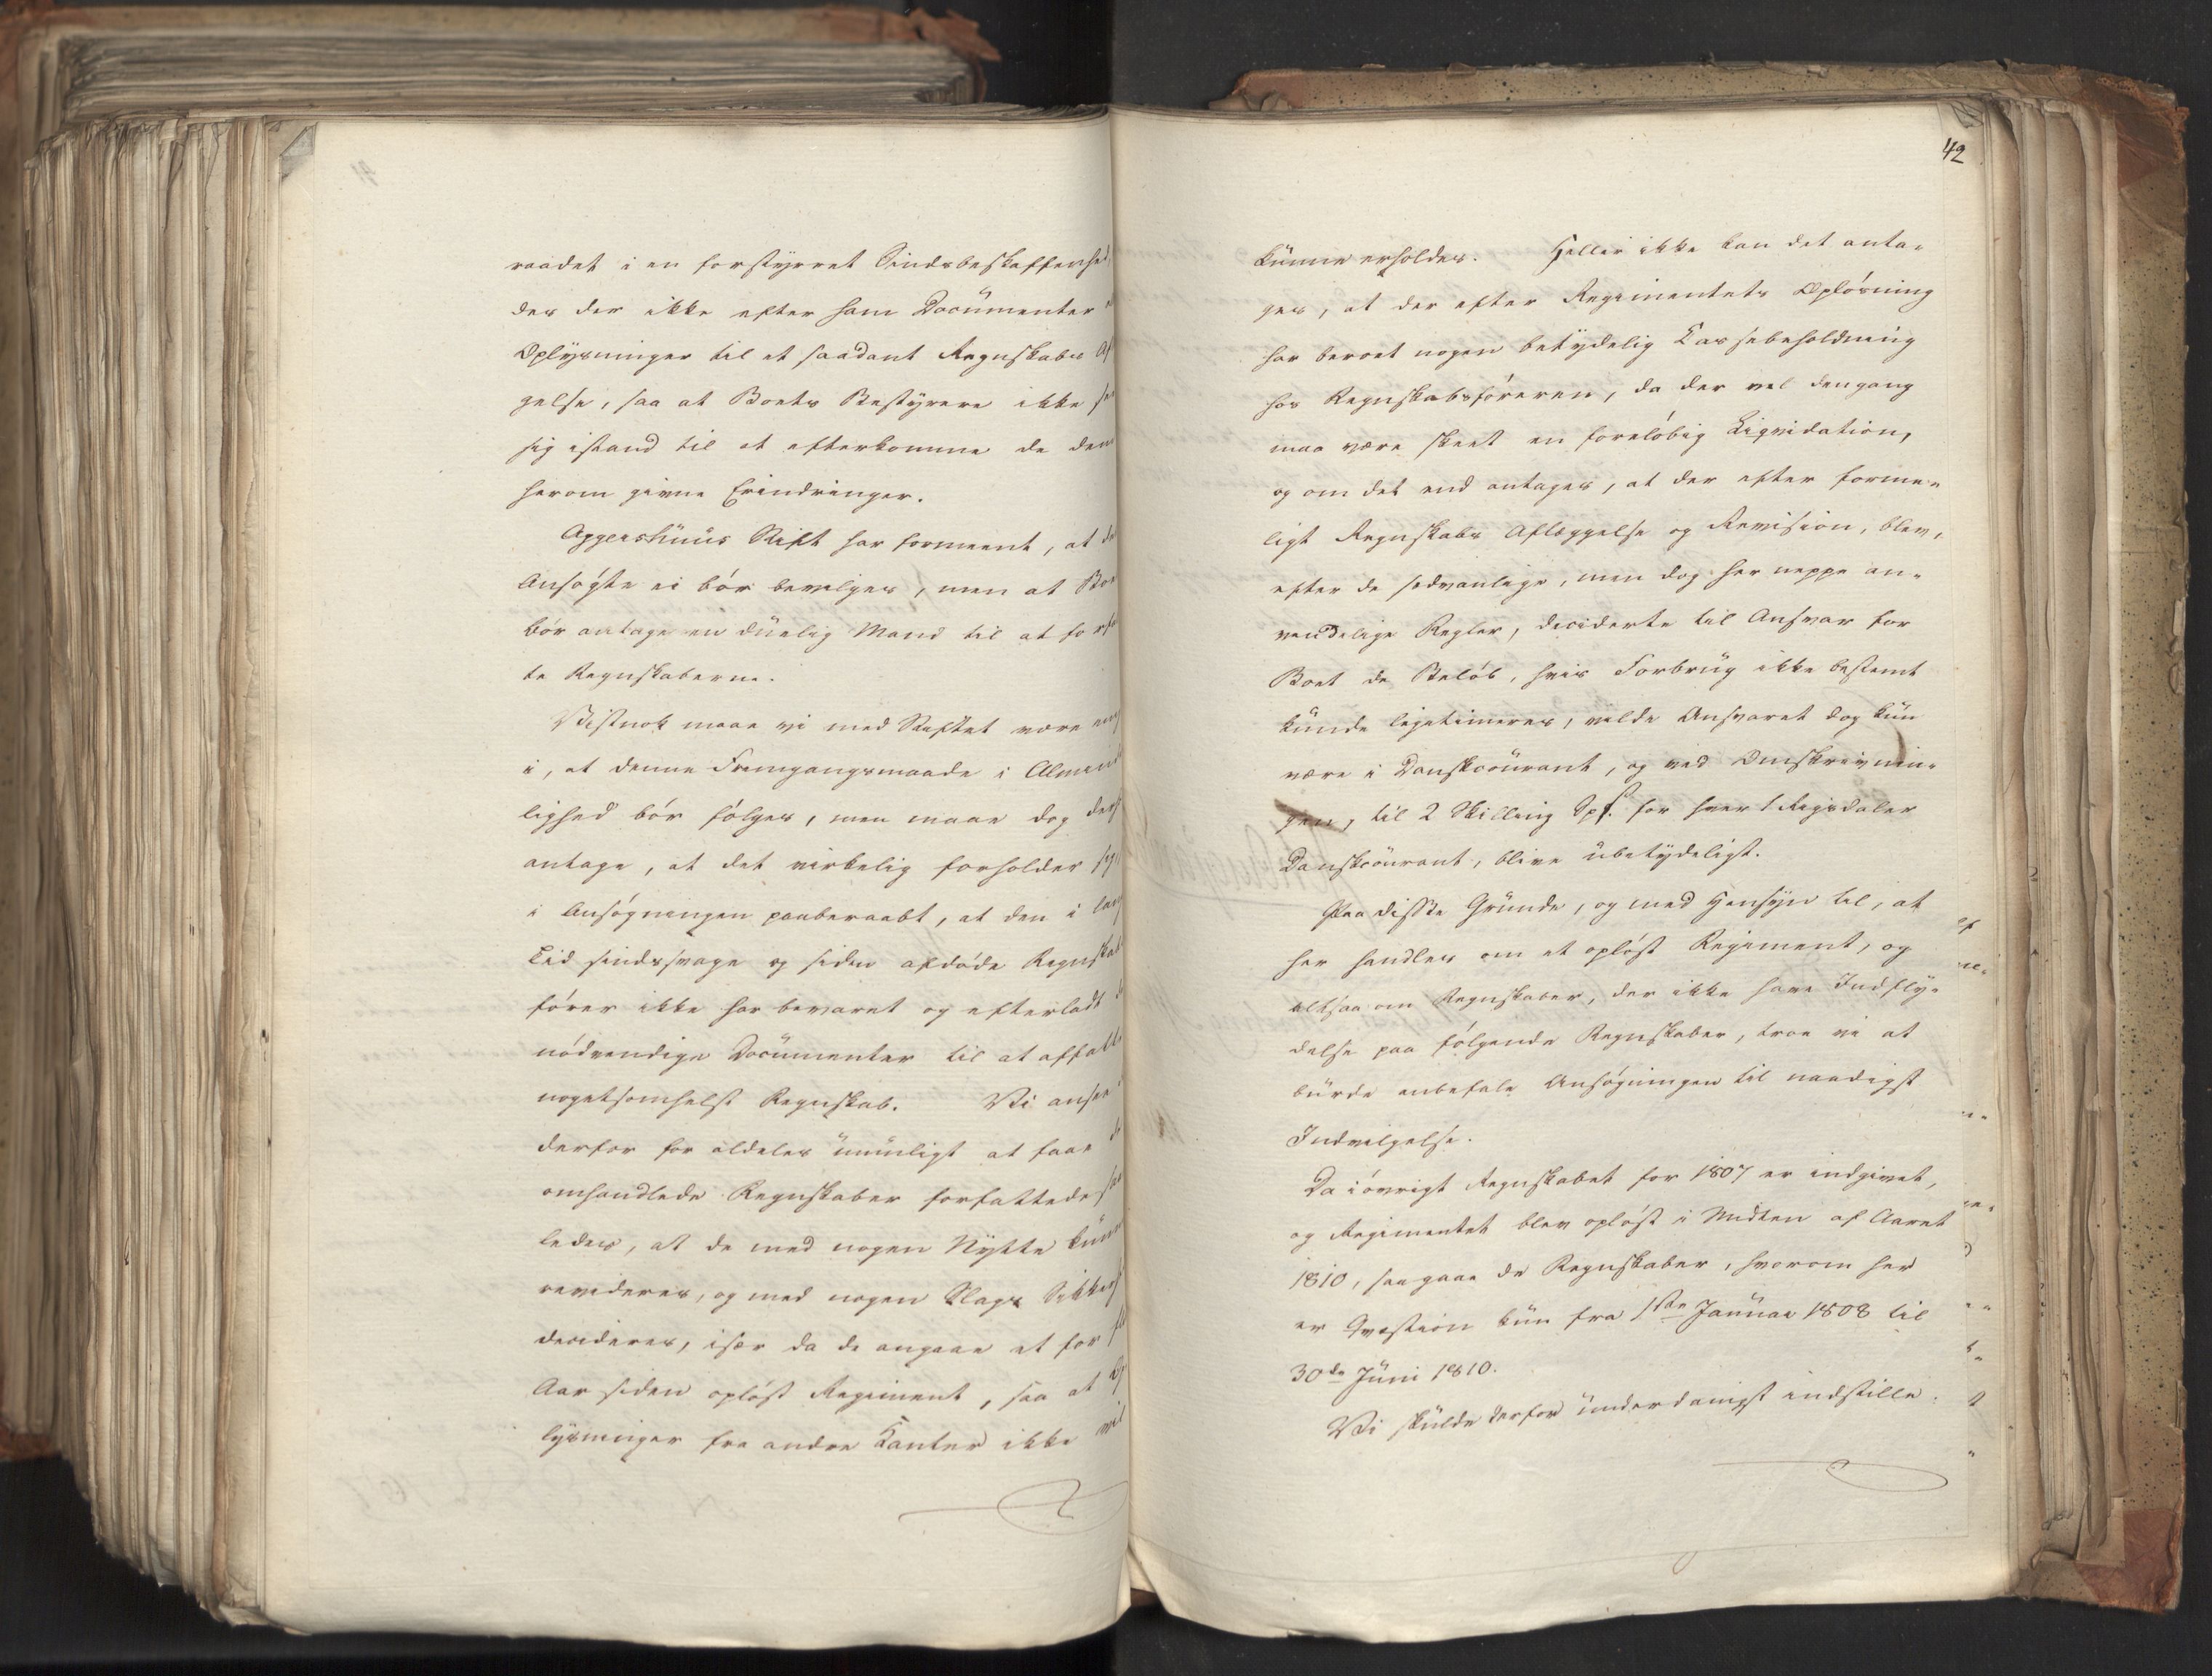 raadet i en forstyrret Sindsbeskaffenhed,
des der ikke efter ham Documenter
Oplysninger til et saadant Regnskabs Af
gelse, saa at Boets Bestyrere ikke se
sig istand til at efterkomme de dem
herom givne Erindringer.
Aggershuus Stift har formeent, at de
Ansøgte ei bør bevilges, men at Boe
bør antage en duelig Mand til at forfa
te Regnskaberne.
Vistnok maae vi med Stiftet være eni
i, at denne Fremgangsmaade i Almind
lighed bør følges, men maae dog
antage, at det virkelig forholder sig
i Ansøgningen paaberaabt, at den i lang
Tid sindssvage og siden afdøde Regnskab
fører ikke har bevaret og efterladt d
nødvendige Documenter til at affatte
nogetsomhelst Regnskab. Vi ansee
derfor for aldeles umuligt at faae d
omhandlede Regnskaber forfattede saa
ledes, at de med nogen Nytte kunne
revideres, og med nogen Slags Sikkerh
decideres, især da de angaae et for
Aar siden opløst Regiment, saa at Op
lysninger fra andre Kanter ikke vil
42
kunne erholdes. Heller ikke kan det anta-
ges, at der efter Regimentets Opløsning
har beroet nogen betydelig Cassebeholdning
hos Regnskabsføreren, da der vel dengang
maa være skeet en foreløbig Liqvidation,
og om det end antages, at der efter forme-
ligt Regnskabs Aflæggelse og Revision, blev,
efter de sædvanlige, men dog her neppe an-
vendelige Regler, deciderte til Ansvar for
Boet de Beløb, hvis Forbrug ikke bestemt
kunde legitimeres, vilde Ansvaret dog kun
være i Danskcourant, og ved Omskrivnin-
gen, til 2 Skilling Sps. for hver 1 Rigsdaler
Danskcourant, blive ubetydeligt.
Paa disse Grunde, og med Hensyn til, at
her handles om et opløst Regiment, og
altsaa om Regnskaber, der ikke have Indfly-
delse paa følgende Regnskaber, troe vi at
burde anbefale Ansøgningen til naadigst
Indvilgelse.
Da iøvrigt Regnskabet for 1807 er indgivet,
og Regimentet blev opløst i Midten af Aaret
1810, saa gaae de Regnskaber, hvorom her
er Qvæstion kun fra 1ste Januar 1808 til
30de Juni 1810.
Vi skulde derfor underdanigst indstille